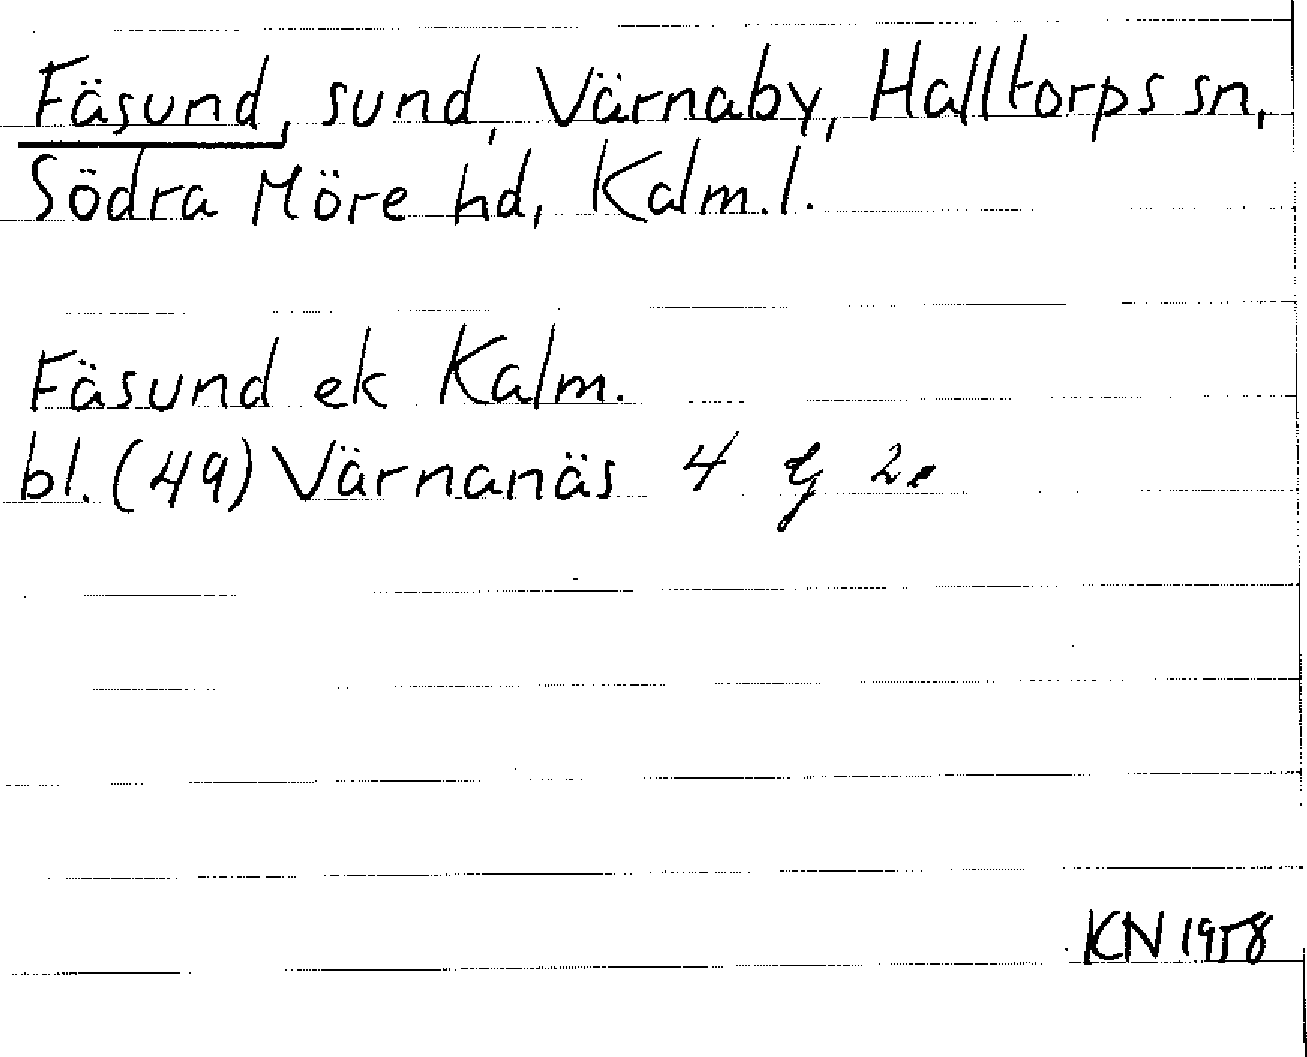 Fäsund, sund, Värnaby, Halltorps sn,
Södra Möre hd, Kalm.l.
Fäsund ek Kalm.
bl. (49) Värnanäs 4 G 2e
KN 1958